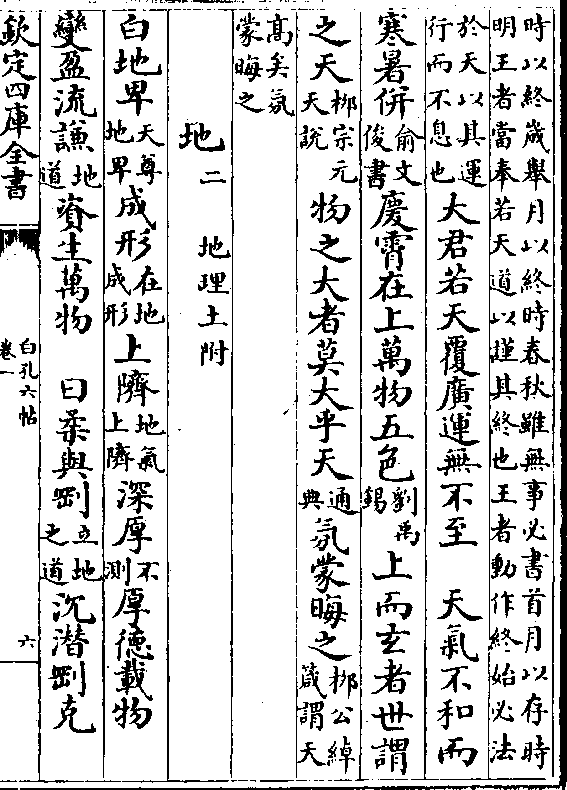 時以終歲舉月以終時春秋雖無事必書首月以存時
明王者當奉若天道以謹其終也王者動作終始必法
於天以其運
行而不息也
大君若天覆廣運無不至　天氣不和而
寒暑併
俞文
俊書
慶霄在上萬物五色
劉禹
錫
上而玄者世謂
之天
柳宗元
天說
物之大者莫大乎天
通
典
氛蒙晦之
柳公綽
箴謂天
高矣氛
蒙晦之
地二　地理土附
白地卑
天尊
地卑
成形
在地
成形
上隮
地氣
上隮
深厚
不
測
厚德載物
變盈流謙
地
道
資生萬物　曰柔與剛
立地
之道
沉潛剛克
欽定四庫全書
白孔六帖
卷一
六